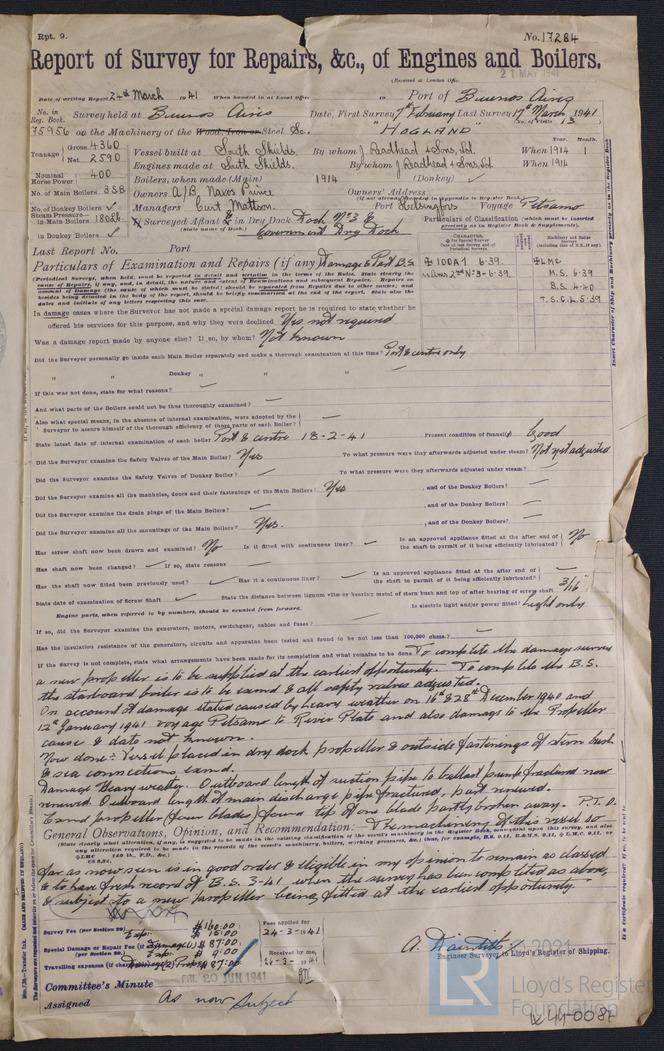 Rpt. 9.
No. 17284
Report of Survey for Repairs, &c., of Engines and Boilers.
(Received at London Office
21 MAY 1941
Date of writing Report 24th March 1941 When handed in at Local Office 19 Port of Buenos Aires
No. in Reg. Book. Survey held at Buenos Aires Date, First Survey 7th February Last Survey 17th March 1941
(No. of Visits 13
75956 on the Machinery of the Wood, Iron or Steel Sc. "HOGLAND"
Tonnage Gross 4360 Net 2590
Vessel built at South Shields. By whom J. Readhead & Sons, Ld. When 1914
Year. Month.
Engines made at South Shields. By whom J. Readhead & Sons, Ld. When 1914
Nominal Horse Power 400
Boilers, when made (Main) 1914 (Donkey) ✓
No. of Main Boilers 3SB
Owners A/B. Naxos Prince Owners' Address
(if not already recorded in Appendix to Register Book.)
No. of Donkey Boilers ✓
Managers Curt Mattson. Port Helsingfors Voyage Petsamo
Steam Pressure in Main Boilers 180 lb
If Surveyed Afloat & in Dry Dock Dock No 3 &
(State name of Dock.) Government Dry Dock
in Donkey Boilers ✓
Particulars of Classification (which must be inserted precisely as in Register Book & Supplements).
Last Report No. Port
Particulars of Examination and Repairs (if any) Damage & Part B.S.
✠ 100A1 6.39.
ss Bmrs 2nd No 3-6.39.
✠ LMC
M.S. 6.39
B.S. 4.40
T.S.C.L. 5.39
In damage cases where the Surveyor has not made a special damage report he is required to state whether he
offered his services for this purpose, and why they were declined Yes not required
Was a damage report made by anyone else? If so, by whom? Not known
Did the Surveyor personally go inside each Main Boiler separately and make a thorough examination at this time? Port & centre only
" " Donkey " " "
If this was not done, state for what reasons?
And what parts of the Boilers could not be thus thoroughly examined?
Also what special means, in the absence of internal examination, were adopted by the
Surveyor to assure himself of the thorough efficiency of those parts of each Boiler?
State latest date of internal examination of each boiler Port & centre 18-2-41 Present condition of funnel(s) Good
Did the Surveyor examine the Safety Valves of the Main Boiler? Yes To what pressure were they afterwards adjusted under steam? Not yet adjusted
Did the Surveyor examine the Safety Valves of Donkey Boiler? To what pressure were they afterwards adjusted under steam?
Did the Surveyor examine all the manholes, doors and their fastenings of the Main Boilers? Yes , and of the Donkey Boilers?
Did the Surveyor examine the drain plugs of the Main Boilers? , and of the Donkey Boilers?
Did the Surveyor examine all the mountings of the Main Boilers? Yes. , and of the Donkey Boilers?
Has screw shaft now been drawn and examined? No Is it fitted with continuous liner? Is an approved appliance fitted at the after end of the shaft to permit of it being efficiently lubricated? No
Has shaft now been changed? If so, state reasons
Has the shaft now fitted been previously used? Has it a continuous liner? Is an approved appliance fitted at the after end of the shaft to permit of it being efficiently lubricated?
State date of examination of Screw Shaft State the distance between lignum vitæ or bearing metal of stern bush and top of after bearing of screw shaft 3/16"
Engine parts, when referred to by numbers, should be counted from forward. Is electric light and/or power fitted? Light only
If so, did the Surveyor examine the generators, motors, switchgear, cables and fuses?
Has the insulation resistance of the generators, circuits and apparatus been tested and found to be not less than 100,000 ohms?
If the Survey is not complete, state what arrangements have been made for its completion and what remains to be done. To complete the damage survey
a new propeller is to be supplied at the earliest opportunity. To complete the B.S.
the starboard boiler is to be exmd & all safety valves adjusted.
On account of damage stated caused by heavy weather on 16th & 28th December 1940 and
12th January 1941 voyage Petsamo to River Plate and also damage to the Propeller
cause & date not known.
Now done:- Vessel placed in dry dock propeller & outside fastenings of stern bush
& sea connections exmd.
Damage Heavy weather. Outboard length of suction pipe to ballast pump fractured now
renewed. Outboard length of main discharge pipe fractured, part renewed.
Exmd propeller (four blades) found tip of one blade partly broken away. P.T.O.
General Observations, Opinion, and Recommendation:- The machinery of this vessel so
far as now seen is in good order & eligible in my opinion to remain as classed
& to have fresh record of B.S. 3-41 when the survey has been completed as above,
& subject to a new propeller being fitted at the earliest opportunity.
Survey Fee (per Section 29) $160.00
Exps. $ 15.00
Special Damage or Repair Fee (if any) (per Section 29.) $ 87.00
Exps. $ 9.00
Travelling expenses (if chargeable) $ 87.00
Fees applied for
24-3-1941
Received by me,
1941
A. Daintith
Engineer Surveyor to Lloyd's Register of Shipping.
Committee's Minute FRI. 20 JUN 1941
Assigned As now Subject
© 2021
LR
Lloyd's Register
Foundation